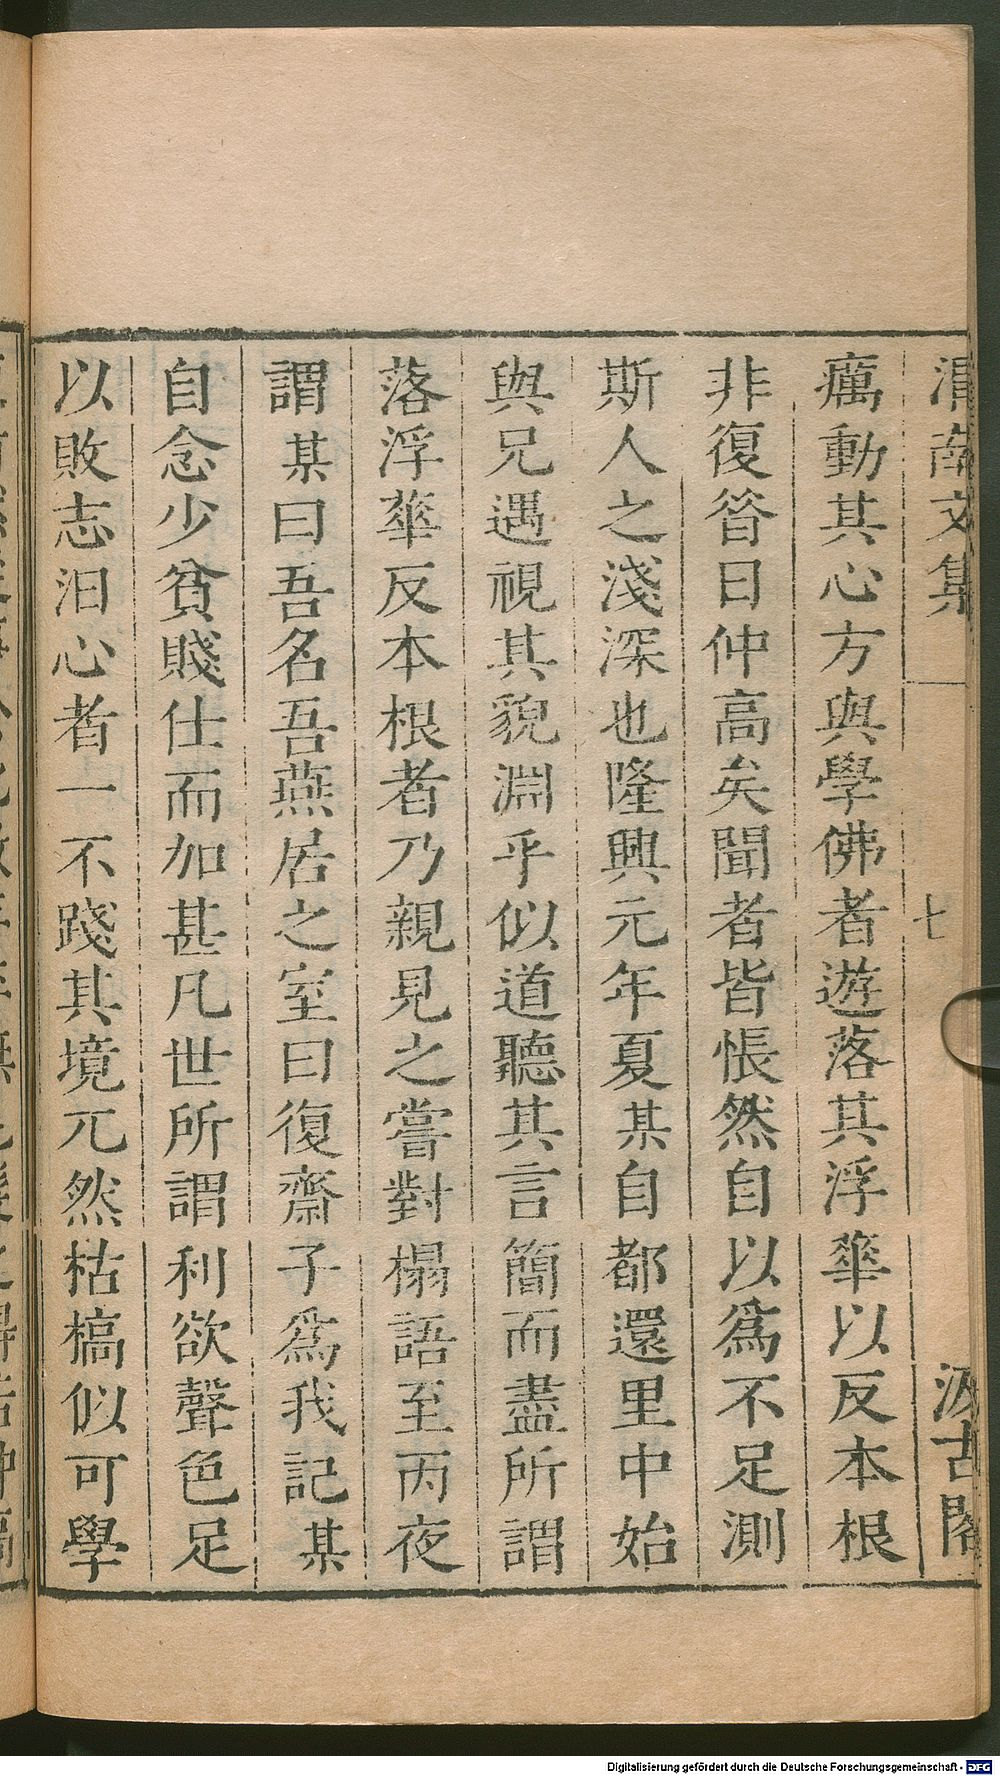 渭南文集
七
汲古閣
癘動其心方與學佛者遊落其浮華以反本根
非復昝日仲高矣聞者皆悵然自以為不足測
斯人之淺深也隆興元年夏某自都還里中始
與兄遇視其貌淵乎似道聽其言簡而盡所謂
落浮華反本根者乃親見之嘗對榻語至丙夜
謂某曰吾名吾燕居之室曰復齋子爲我記某
自念少貧賤仕而加甚凡世所謂利欲聲色足
以敗志汩心者一不踐其境兀然枯槁似可學
Digitalisierung gefördert durch die Deutsche Forschungsgemeinschaft - DFG